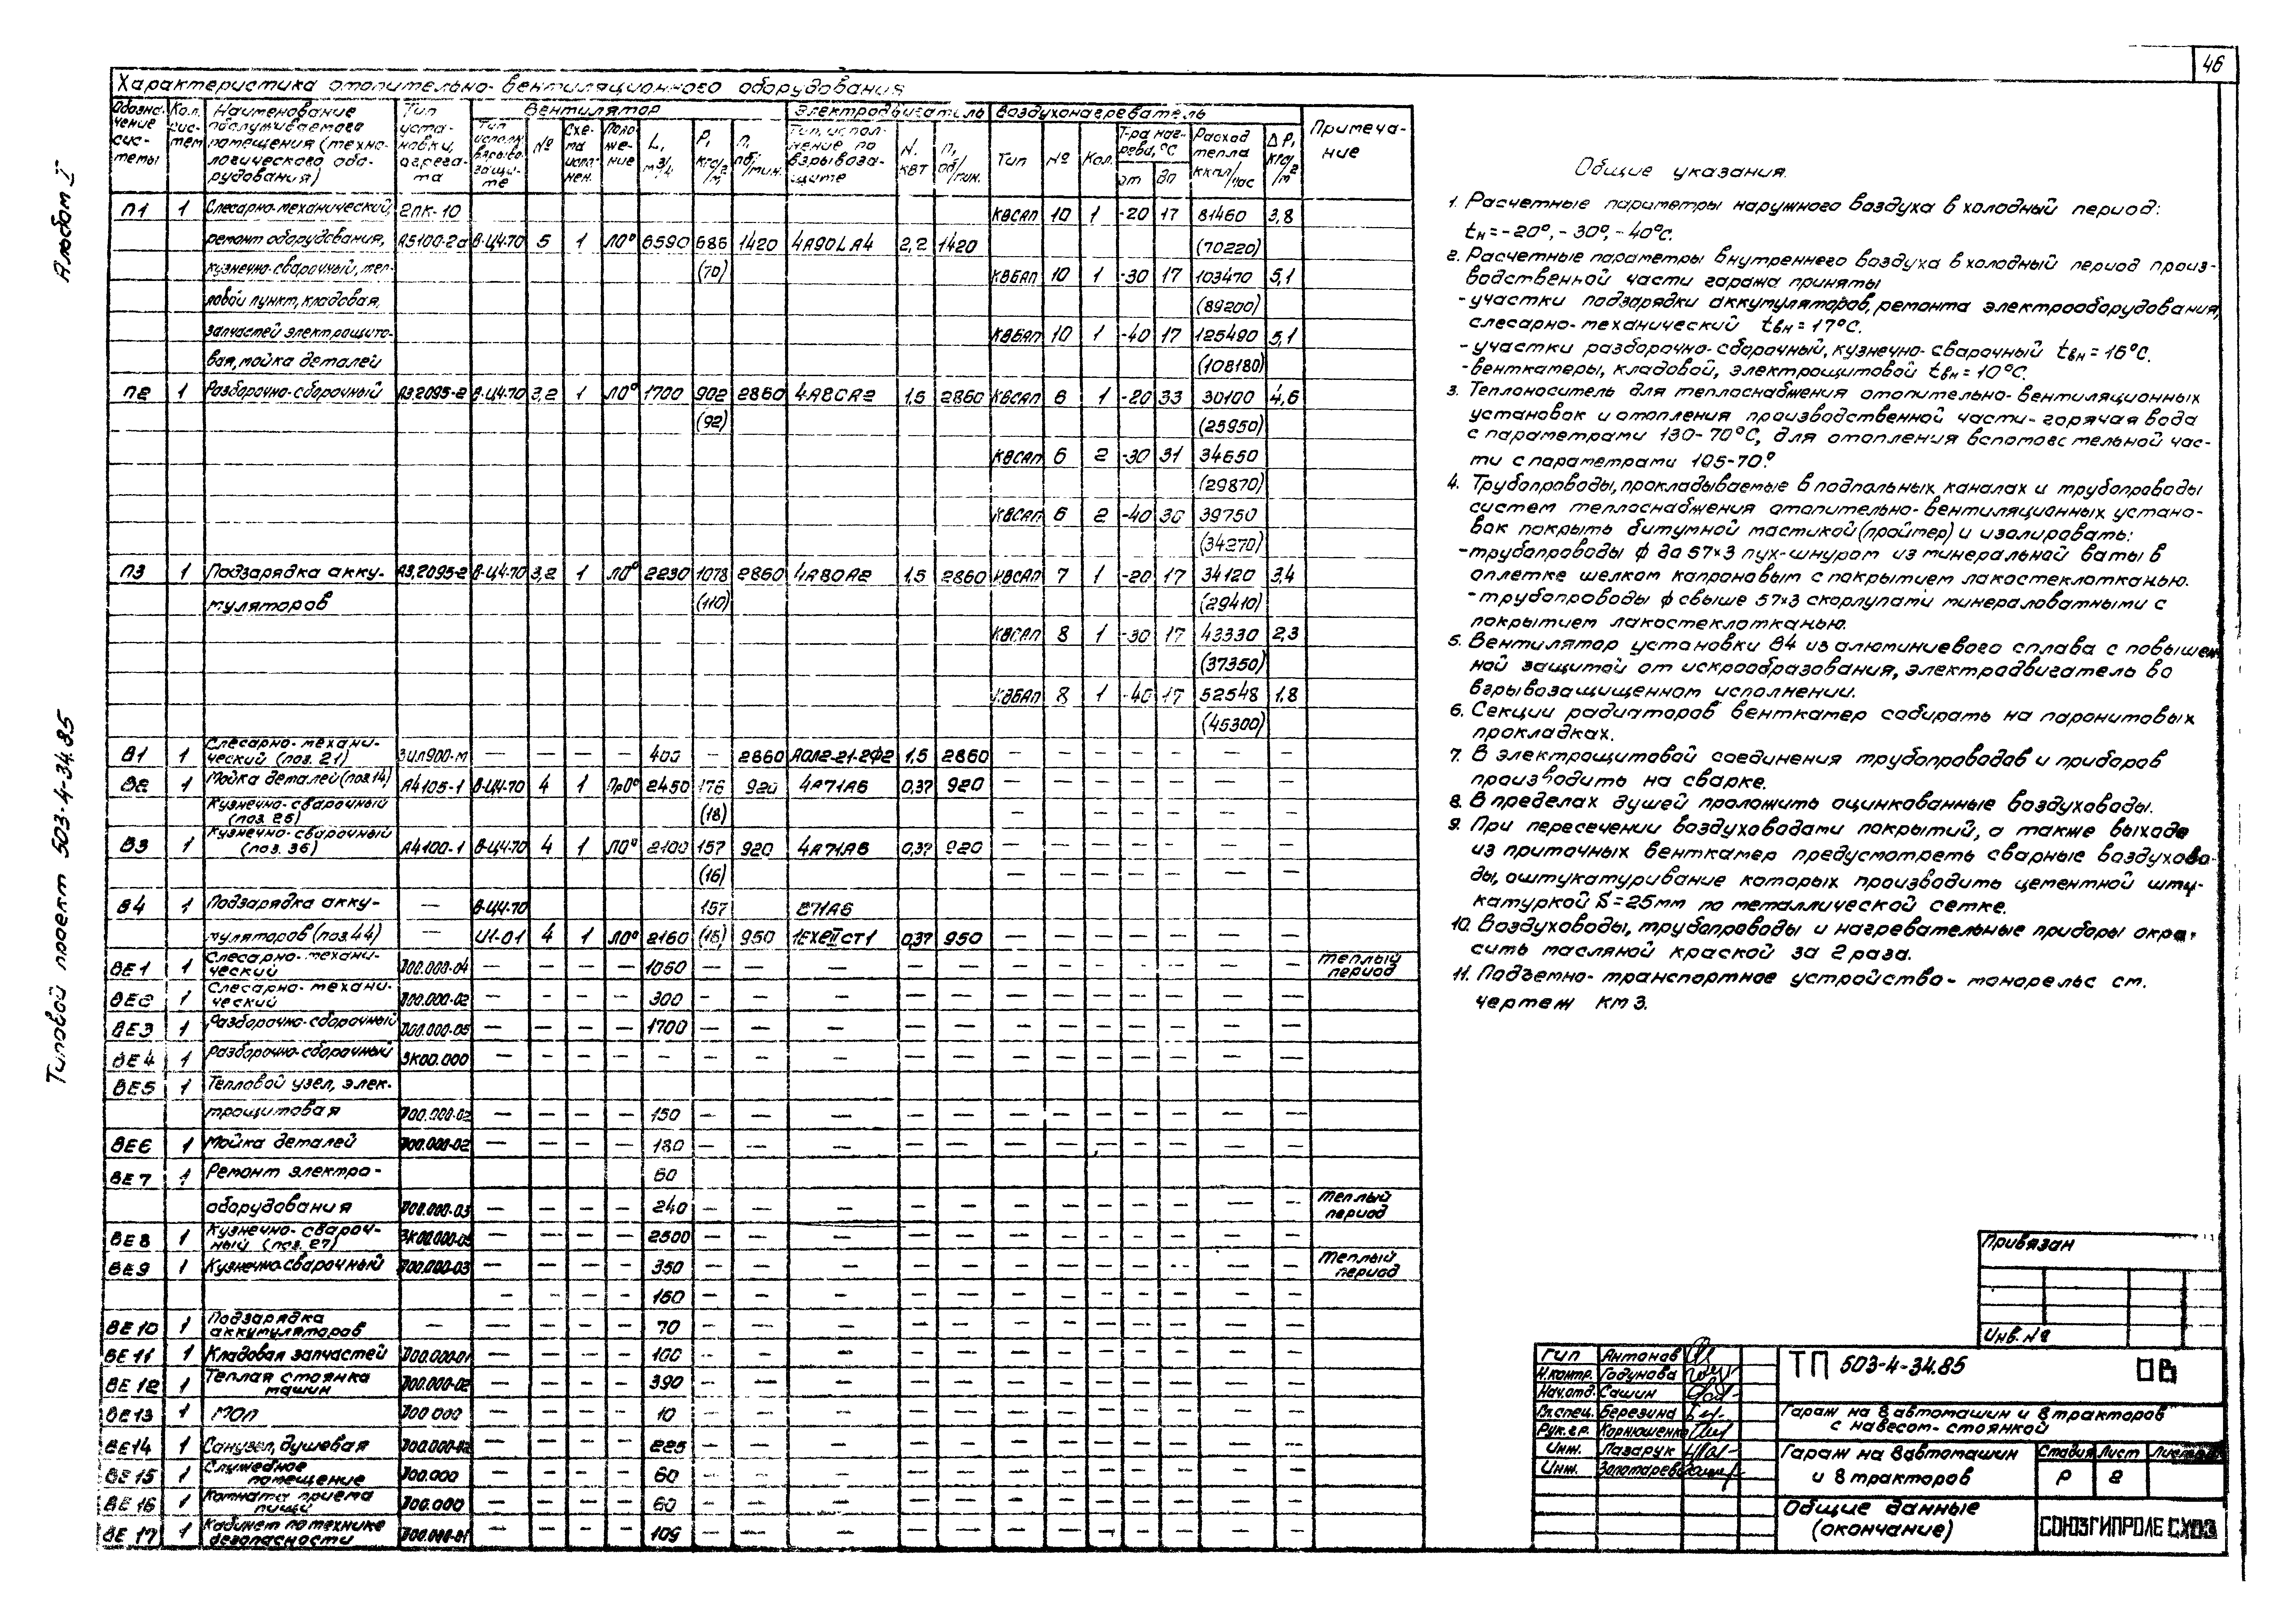 46
Альбом I
Типовой проект 503-4-34.85
Характеристика отопительно-вентиляционного оборудования
Обозначение системы
Кол. систем
Наименование обслуживаемого помещения (технологического оборудования)
Тип установки, агрегата
Вентилятор
Электродвигатель
Воздухонагреватель
Примечание
№ L, м³/ч P, кгс/м² n, об/мин. N, квт n, об/мин. Тип № Кол. Т-ра нагрева, °С от до Расход тепла ккал/час ΔP, кгс/м²
П1 1 Слесарно-механический, 2ПК-10 КВСАП 10 1 -20 17 81460 3,8
ремонт оборудования, А5100-2а В-Ц4-70 5 1 Л0° 6590 686 1420 4А90LА4 2,2 1420 (70220)
кузнечно-сварочный, теп- (70) КВБАП 10 1 -30 17 103470 5,1
ловой пункт, кладовая (89200)
запчастей электрощито- КВБАП 10 1 -40 17 125490 5,1
вая, мойка деталей (108180)
П2 1 Разборочно-сборочный А3.2095-2 В-Ц4-70 3,2 1 Л0° 1700 902 2860 1,5 2860 КВСАП 6 1 -20 33 30100 4,6
(92) (25950)
КВСАП 6 2 -30 31 34650
(29870)
КВСАП 6 2 -40 30 39750
(34270)
П3 1 Подзарядка акку- А3.2095-2 В-Ц4-70 3,2 1 Л0° 2230 1078 2860 4А80А2 1,5 2860 КВСАП 7 1 -20 17 34120 3,4
муляторов (110) (29410)
КВСАП 8 1 -30 17 43330 2,3
(37350)
КВБАП 8 1 -40 17 52548 1,8
(45300)
В1 1 Слесарно-механический (поз. 21) ЗИЛ900-М — — — — 400 — 2860 АОЛ2-21-2Ф2 1,5 2860 — — — — — — —
В2 1 Мойка деталей (поз. 14) А4105-1 В-Ц4-70 4 1 Пр0° 2450 176 920 4А71А6 0,37 920 — — — — — — —
Кузнечно-сварочный (поз. 25) (18) — — — — — — —
В3 1 Кузнечно-сварочный (поз. 36) А4100-1 В-Ц4-70 4 1 Л0° 2100 157 920 4А71А6 0,37 920 — — — — — — —
(16) — — — — — — —
В4 1 Подзарядка акку- — В-Ц4-70 157 В71А6
муляторов (поз. 44) — И1-01 4 1 Л0° 2160 (16) 950 1ЕхеIIСТ1 0,37 950 — — — — — — —
ВЕ1 1 Слесарно-механический Д00.000-04 — — — — 1050 — — — — — — — — — — — — теплый период
ВЕ2 1 Слесарно-механический Д00.000-02 — — — — 300 — — — — — — — — — — — —
ВЕ3 1 Разборочно-сборочный Д00.000-05 — — — — 1700 — — — — — — — — — — — —
ВЕ4 1 Разборочно-сборочный ЗК00.000 — — — — — — — — — — — — — — — — —
ВЕ5 1 Тепловой узел, элек-
трощитовая Д00.000-02 — — — — 150 — — — — — — — — — — — —
ВЕ6 1 Мойка деталей Д00.000-02 — — — — 180 — — — — — — — — — — — —
ВЕ7 1 Ремонт электро- 60
оборудования Д00.000-03 — — — — 240 — — — — — — — — — — — — теплый период
ВЕ8 1 Кузнечно-сварочный (поз. 27) ЗК00.000-05 — — — — 2500 — — — — — — — — — — — —
ВЕ9 1 Кузнечно-сварочный Д00.000-03 — — — — 350 — — — — — — — — — — — — теплый период
— — — — 150 — — — — — — — — — — — —
ВЕ10 1 Подзарядка аккумуляторов — — — — — 70 — — — — — — — — — — — —
ВЕ11 1 Кладовая запчастей Д00.000-01 — — — — 100 — — — — — — — — — — — —
ВЕ12 1 Теплая стоянка машин Д00.000-02 — — — — 390 — — — — — — — — — — — —
ВЕ13 1 МОП Д00 000 — — — — 10 — — — — — — — — — — — —
ВЕ14 1 Санузел, душевая Д00.000-02 — — — — 225 — — — — — — — — — — — —
ВЕ15 1 Служебное помещение Д00.000 — — — — 60 — — — — — — — — — — — —
ВЕ16 1 Комната приема пищи Д00.000 — — — — 60 — — — — — — — — — — — —
ВЕ17 1 Кабинет по технике безопасности Д00.000-01 — — — — 109 — — — — — — — — — — — —
Общие указания.
1. Расчетные параметры наружного воздуха в холодный период:
tн = -20°, -30°, -40°С.
2. Расчетные параметры внутреннего воздуха в холодный период произ-
водственной части гаража приняты
- участки подзарядки аккумуляторов, ремонта электрооборудования,
слесарно-механический tвн = 17°С.
- участки разборочно-сборочный, кузнечно-сварочный tвн = 16°С.
- венткамеры, кладовой, электрощитовой tвн = 10°С.
3. Теплоноситель для теплоснабжения отопительно-вентиляционных
установок и отопления производственной части - горячая вода
с параметрами 130-70°С, для отопления вспомогательной час-
ти с параметрами 105-70°.
4. Трубопроводы, прокладываемые в подпольных каналах и трубопроводы
систем теплоснабжения отопительно-вентиляционных устано-
вок покрыть битумной мастикой (праймер) и изолировать:
- трубопроводы ф до 57×3 пух-шнуром из минеральной ваты в
оплетке шелком капроновым с покрытием лакостеклотканью.
- трубопроводы ф свыше 57×3 скорлупами минераловатными с
покрытием лакостеклотканью.
5. Вентилятор установки В4 из алюминиевого сплава с повышен-
ной защитой от искрообразования, электродвигатель во
взрывозащищенном исполнении.
6. Секции радиаторов венткамер собирать на паронитовых
прокладках.
7. В электрощитовой соединения трубопроводов и приборов
производить на сварке.
8. В пределах душей проложить оцинкованные воздуховоды.
9. При пересечении воздуховодами покрытий, а также выходе
из приточных венткамер предусмотреть сварные воздухово-
ды, оштукатуривание которых производить цементной шту-
катуркой S=25мм по металлической сетке.
10. Воздуховоды, трубопроводы и нагревательные приборы окра-
сить масляной краской за 2 раза.
11. Подъемно-транспортное устройство - монорельс см.
чертеж КМ 3.
Привязан
Инв. №
ГИП Антонов
Н.контр. Годунова
Нач.отд. Сашин
Гл.спец. Березина
Рук.гр. Корнюшенко
Инж. Лазарук
Инж. Золотарев
ТП 503-4-34.85 ОВ
Гараж на 8 автомашин и 8 тракторов
с навесом-стоянкой
Гараж на 8 автомашин
и 8 тракторов
Стадия Лист
Р 2
Общие данные
(окончание)
СОЮЗГИПРОЛЕСХОЗ